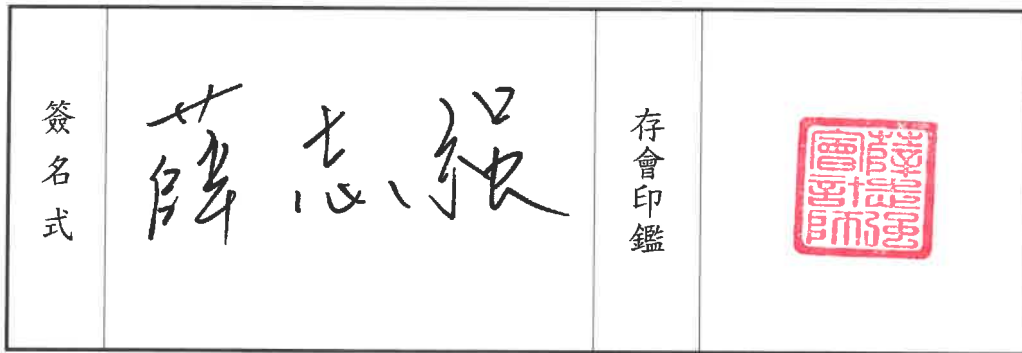 簽名式
薛志强
存會印鑑
薛志强
會計師